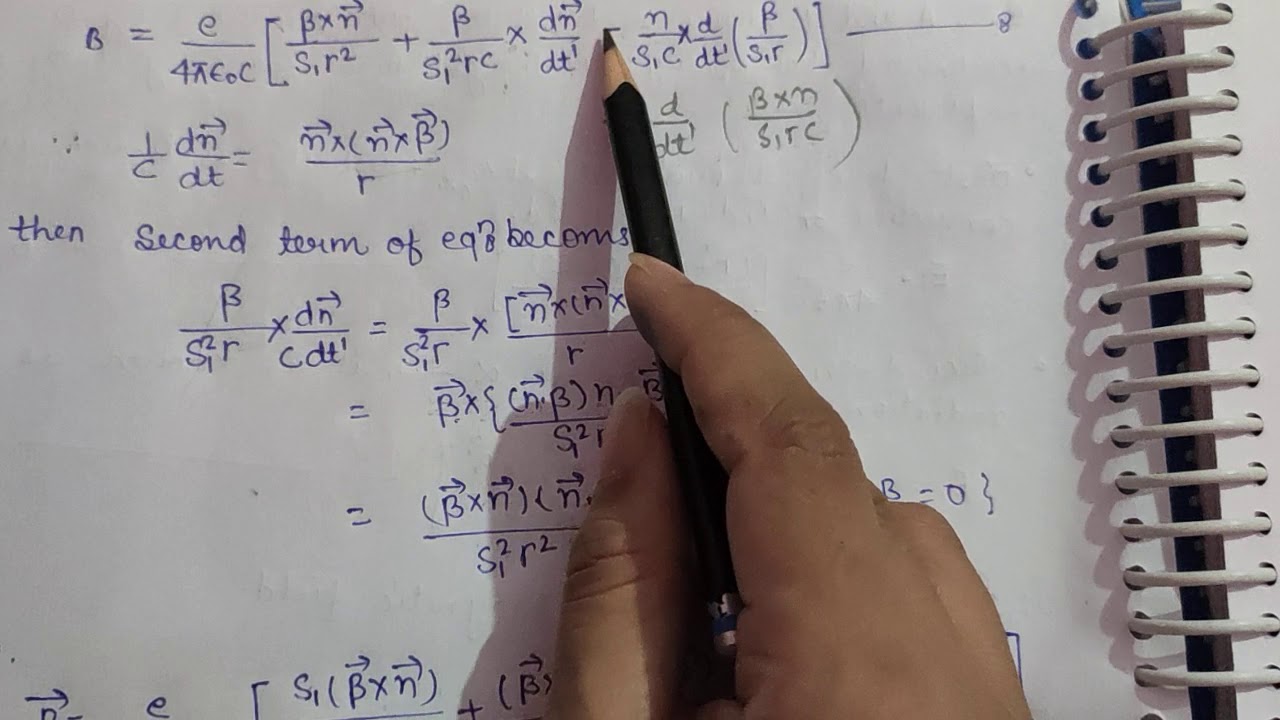 B = e/4πϵ₀c [ β×n⃗/S₁r² + β/S₁²rc × dn⃗/dt' - n/S₁c × d/dt' (β/S₁r) ] 8
d/dt' ( β×n/S₁rc )
∵ 1/c dn⃗/dt = n⃗×(n⃗×β⃗)/r
then Second term of eqn 8 becoms
β/S₁²r × dn⃗/cdt' = β/S₁²r × [n⃗×(n⃗× / r
= β⃗×{(n⃗·β)n β⃗ / S₁²r
= (β⃗×n⃗)(n⃗· / S₁²r² β = 0}
e [ S₁(β⃗×n⃗) + (β⃗ ]